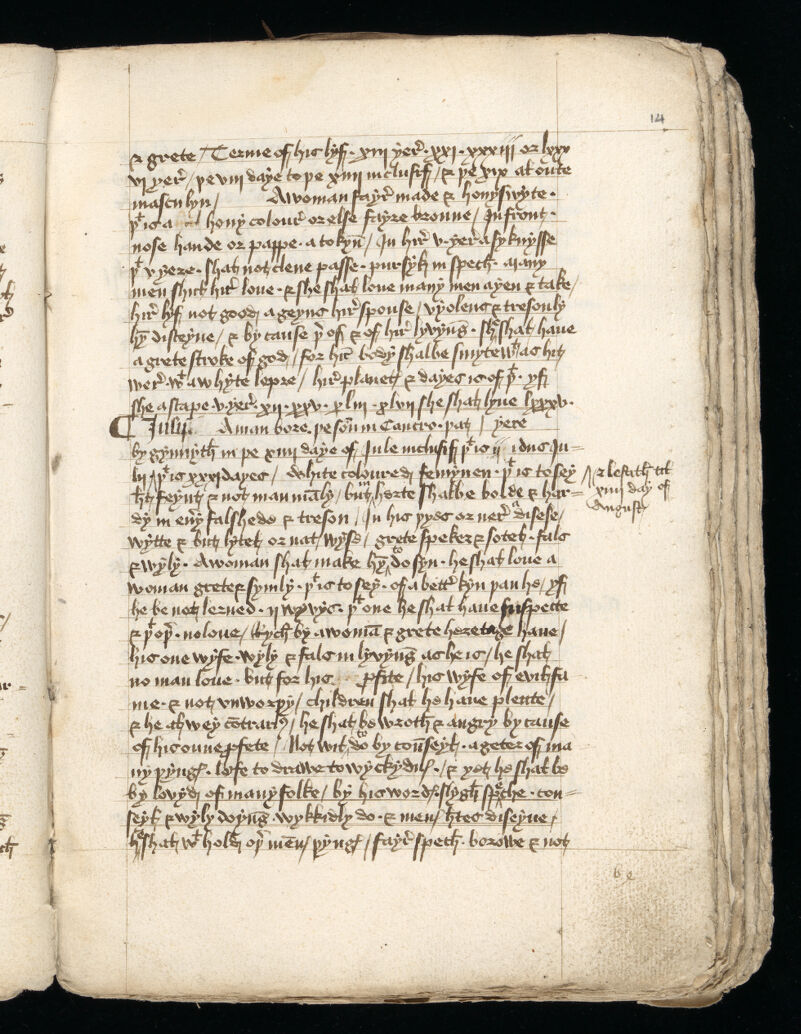 14
& grete / Terme of his lyf . xiij yer . xxj . xxxiij or lxxx
vj yer / þe viij daye to þe xiiij inclusif / & þe xix al oute
masculyn / A woman fayr made & honyswyte .
þt is a hony colour or else fayre bronne / In front .
nose hande or pappe . a tokyn / In hir v . yer a syknysse
þt v yere . shal not clene passe . pursyk in spech . many
men shul hir love . & she shal love many men ayen & take /
hir lyf not good ageyns hir spouse / vyolens & tresonly
hym disteyne / & by cause þer of & of hir lyvyng . she shal have
a grete stroke of god / for hir body shalbe smyte wt as hit
wer wt a whyte lepre / hir planet & dayes is of þt . yf
she ascape v . yer . xij . xxv . xliij . xlvij she shal lyve lxxxv .
¶ July . A man bore . person in Cancro . pat / yere
bygynnyth in þe xiiij daye of Jule inclusif þt is ij idus Ju=
lij / þt is xxxi dayes / white coloured femynen . þt is to sey
feynt & not manly / but herte shalbe bolde & har=
dy in every falshede & treson / In his yyes or ner a disese /
wytte & but lytel or nat wyse / grete speker & sotel . fals
& wyly . A woman shal make hym to do syn . he shal love a
woman grete & symly . þt is to sey . of a better kyn þan he / yf
he be not lerned . ij wyvys . þt one he shal have suspecte
& þt oþer . no love / Rych by a woman & grete heretage have /
his one wyfe . wyly & fals in lyvyng as he is / he shal
no man love . but for his profite / his wyfe of evil fa
me . & not unworþy / children shal he have plente /
& he alwey contrarius / he shal be wroth & angry by cause
of his oune profete / Not wil do by counseyl . a geter of ma
ny þynges . lefe to drawe to wyckydnes / & yet he shal be
by lovyd of many folke / by his wordes slygh speche . con=
seyl & wyly doyng wykkidly do . & men disteyne /
he shal wt hold oþer men þynges / fayr spech . borowe & not
& lestith til
xiiij day of
August